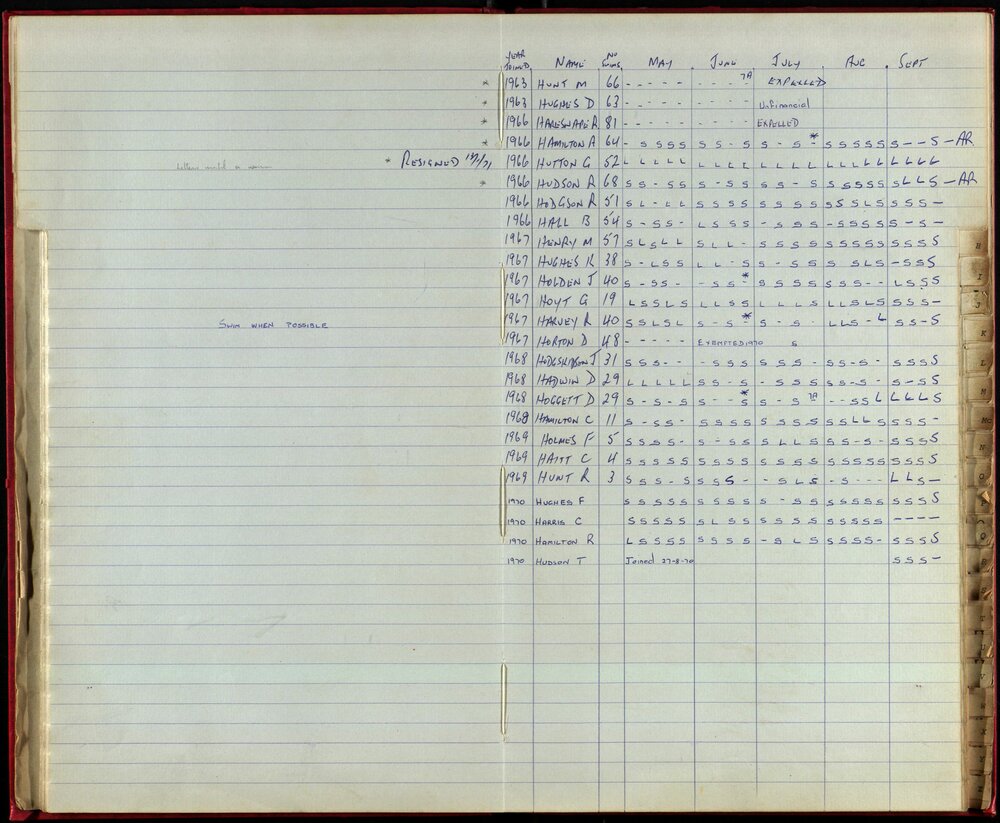 YEAR JOINED NAME No SWIMS MAY JUNE JULY AUG SEPT
* 1963 HUNT M 66 - - - - - - - - - 7A EXPELLED
* 1963 HUGHES D 63 - - - - - - - - - Unfinancial
* 1966 HARESNAPE R 81 - - - - - - - - - EXPELLED
* 1966 HAMILTON A 64 - S S S S S S - S S - S - * S S S S S S - - S - AR
* RESIGNED 1966 HUTTON G 52 L L L L L L L L L L L L L L L L L L L L L L
* 1966 HUDSON R 68 S S - S S S - S S S S - S S S S S S S L L S - AR
1966 HODGSON R 51 S L - L L S S S S S S S S S S S L S S S S -
1966 HALL B 54 S - S S - L S S S - S S S - S S S S S - S -
1967 HENRY M 57 S L S L L S L L - S S S S S S S S S S S S S
1967 HUGHES K 38 S - L S S L L - S S - S S S S L S - S S S
1967 HOLDEN J 40 S - S S - S - - * S S S S S S S - - L S S S
1967 HOYT G 19 L S S L S L L S S L L L S L L S L S S S S -
SWIM WHEN POSSIBLE 1967 HARVEY R 40 S S L S L S - S - * S - S L L S - L S S - S
1967 HORTON D 48 - - - - - EXEMPTED 1970 S
1968 HODGSKINSON J 31 S S S - - - S S S S S S S S S - S - S S S S
1968 HADWIN D 29 L L L L L S S - S - S S S S S - S - S - S S
1968 HOGGETT D 29 S - S - S S - - * S S - S 7A - - S S L L L L S
1968 HAMILTON C 11 S - S S - S S S S S S S S S S L L S S S S -
1969 HOLMES F 5 S S S S - S - S S S L L S S S - S - S S S S
1969 HAITT C 4 S S S S S S S S S S S S S S S S S S S S S S
1969 HUNT R 3 S S S - S S S S - - S L S - S - - - L L S -
1970 HUGHES F S S S S S S S S S S - S S S S S S S S S S S
1970 HARRIS C S S S S S S L S S S S S S S S S S S - - - -
1970 HAMILTON R L S S S S S S S S - S L S S S S S - S S S S
1970 HUDSON T Joined 27-8-70 S S S -
H
I
J
K
L
M
N